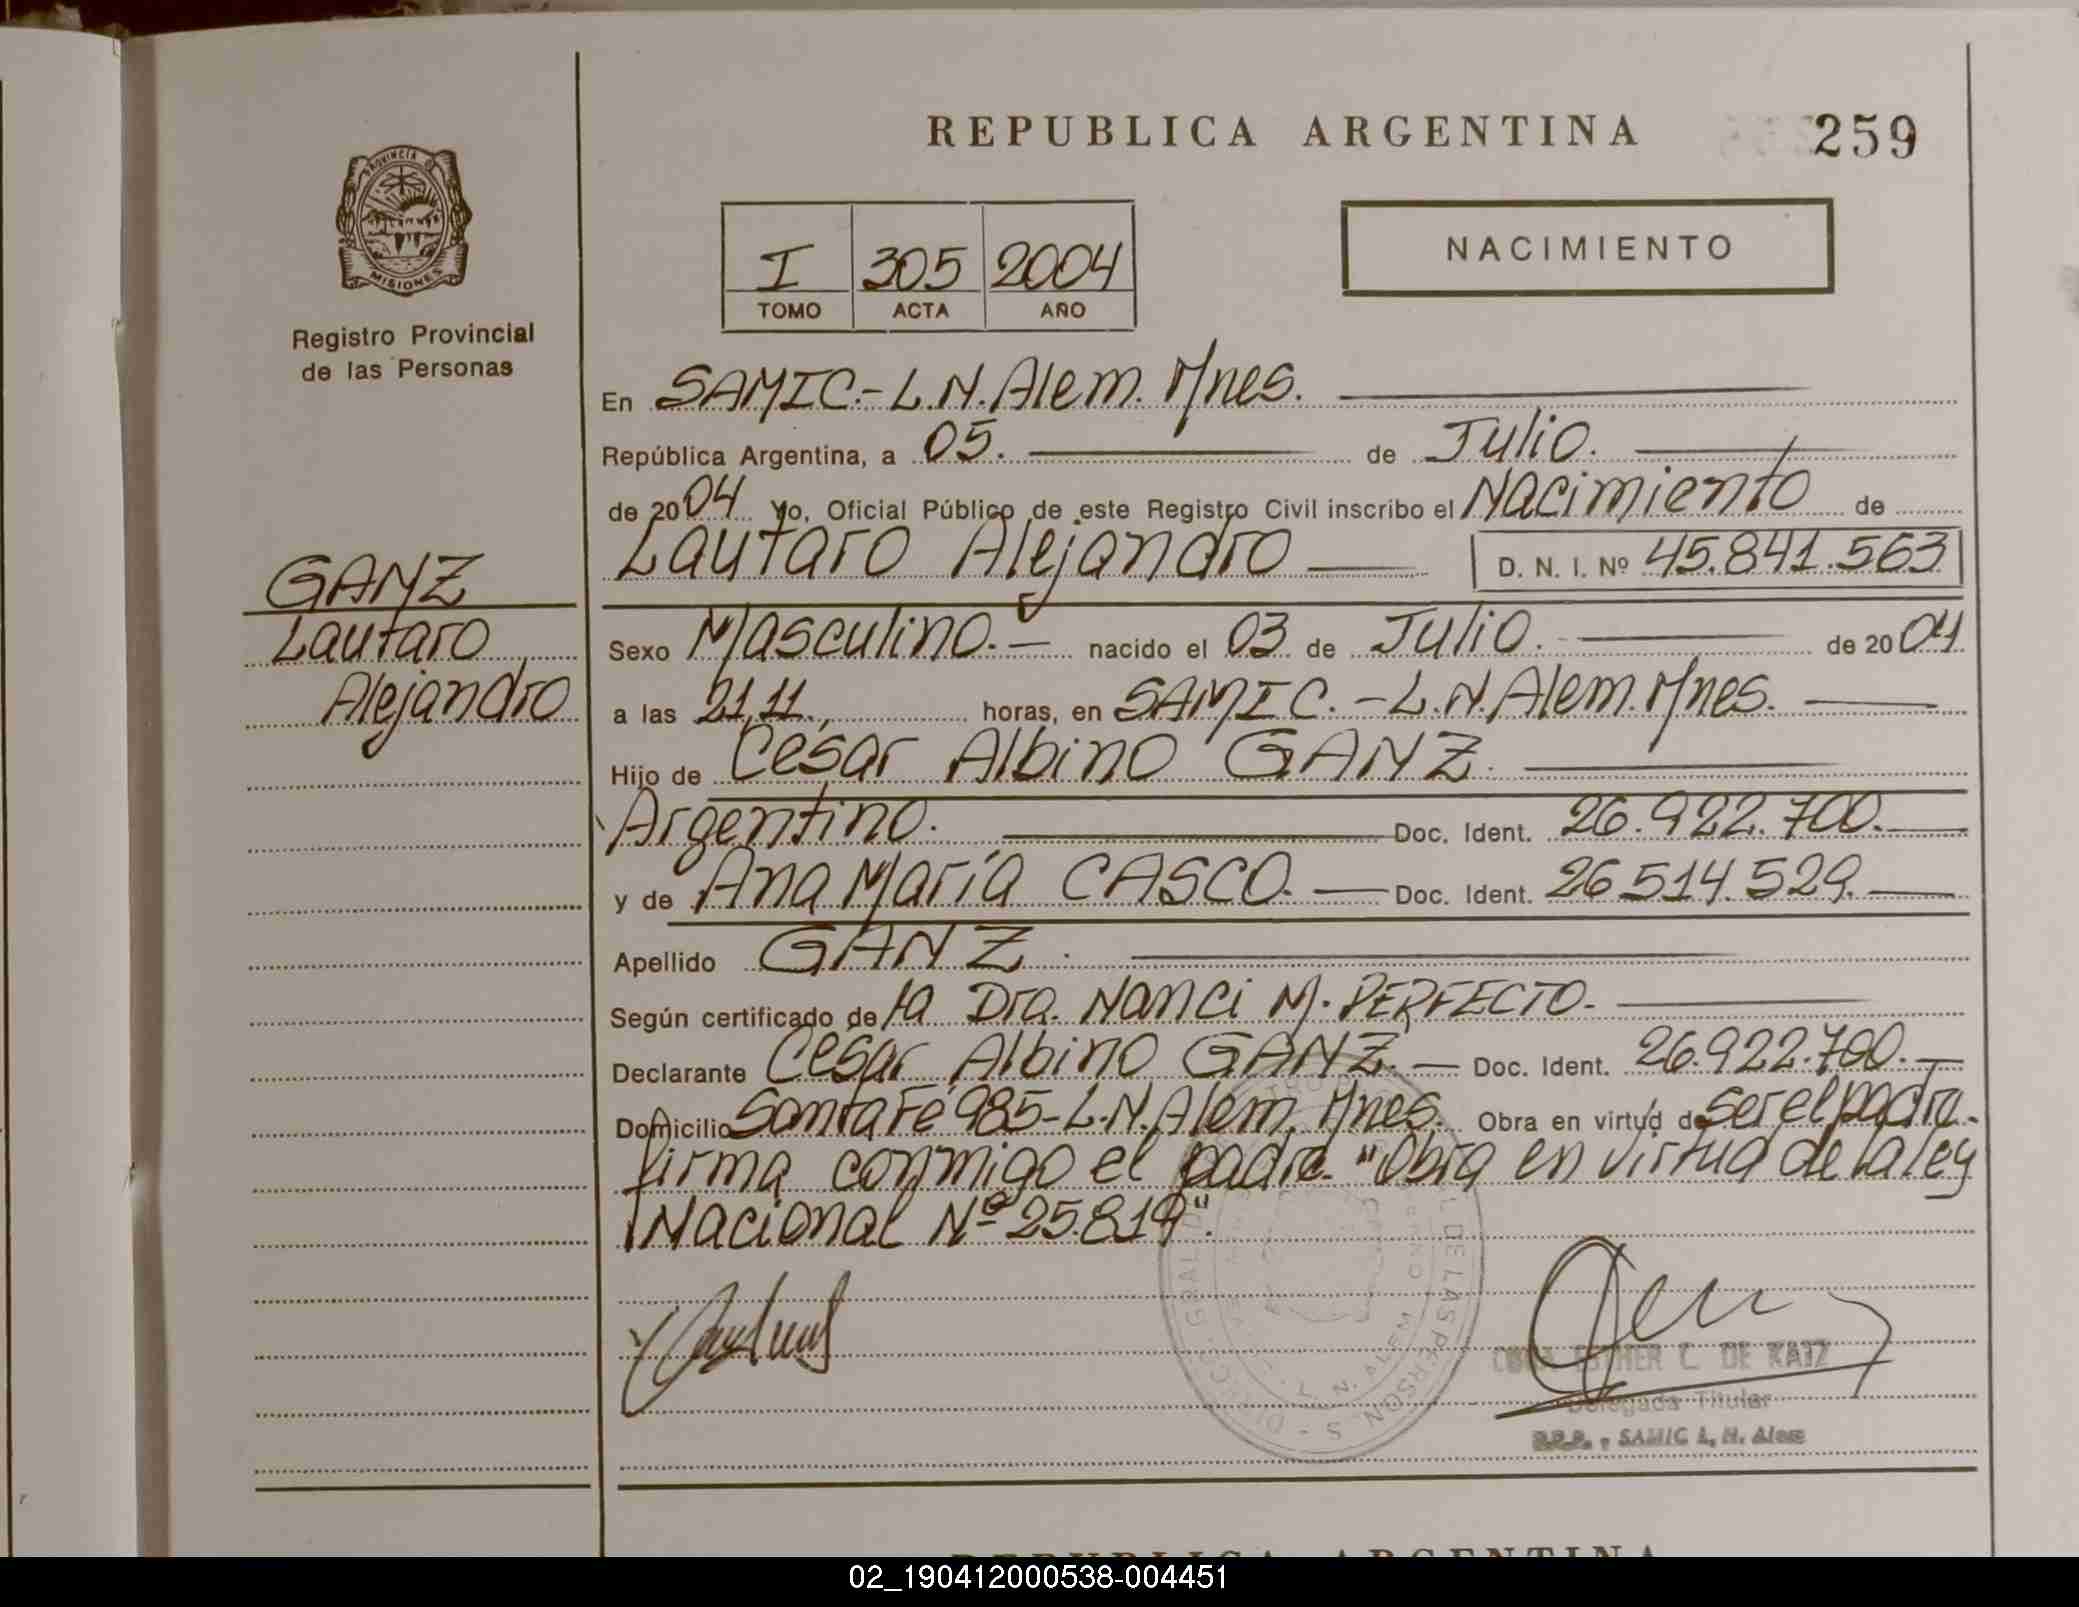 REPUBLICA ARGENTINA 259
PROVINCIA DE
MISIONES
Registro Provincial
de las Personas
I 305 2004
TOMO ACTA AÑO
NACIMIENTO
En SAMIC.-L.N.Alem. Mnes.
República Argentina, a 05. de Julio.
de 2004 Yo, Oficial Público de este Registro Civil inscribo el Nacimiento de
Lautaro Alejandro D. N. I. Nº 45.841.563
GANZ
Lautaro
Alejandro
Sexo Masculino.- nacido el 03 de Julio. de 2004
a las 21,11., horas, en SAMIC.-L.N.Alem.Mnes.
Hijo de César Albino GANZ.
Argentino. Doc. Ident. 26.922.700.
y de Ana María CASCO. Doc. Ident. 26.514.529.
Apellido GANZ.
Según certificado de la Dra. Nanci M. PERFECTO.
Declarante César Albino GANZ. Doc. Ident. 26.922.700.
Domicilio Santa Fé 985-L.N.Alem. Mnes. Obra en virtud de ser el padre.
firma conmigo el padre. "Obra en virtud de la ley
Nacional Nº 25.819".
ESTHER C. DE KATZ
Delegada Titular
SAMIC L. N. Alem
REPUBLICA ARGENTINA
02_190412000538-004451